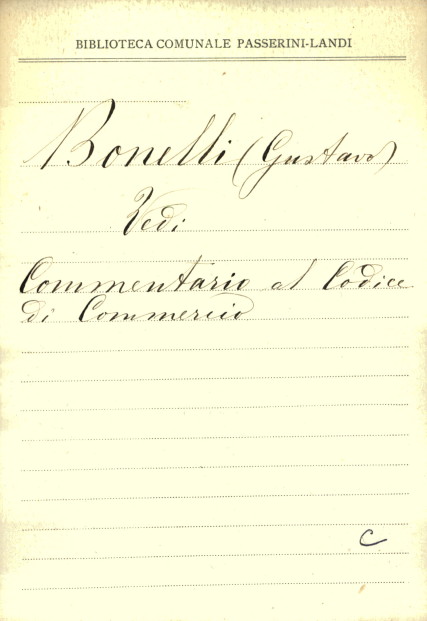 BIBLIOTECA COMUNALE PASSERINI-LANDI
Bonelli (Gustavo)
Vedi
Commentario al Codice
di Commercio
C